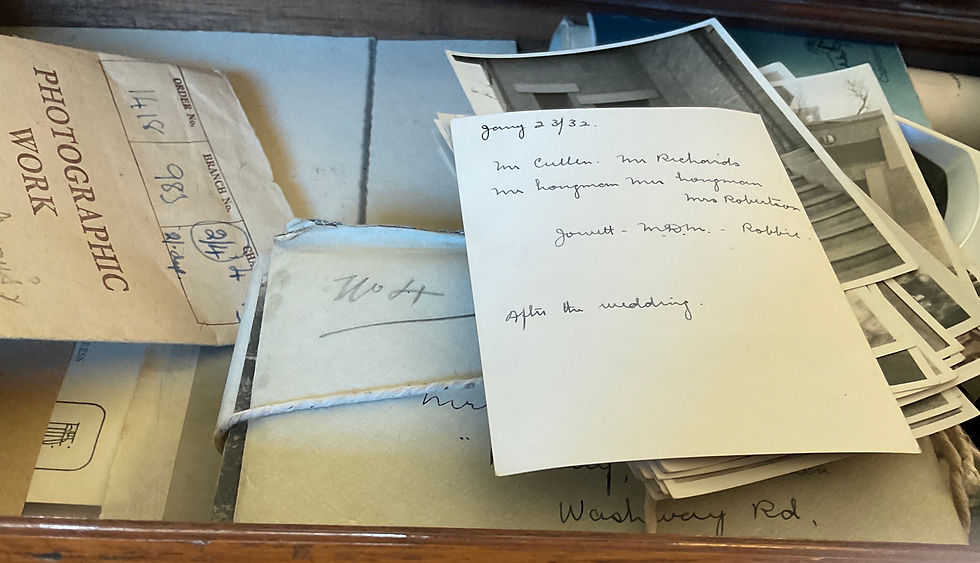 PHOTOGRAPHIC
WORK
ORDER No.
1418
BRANCH No.
985
2/4
No 4
Jany 23/32.
Mr Cullen. Mr Richards
Mr Longman Mrs Longman
Mrs Robertson
Jowett - M.D.M. - Robbie.
After the wedding.
Washway Rd,